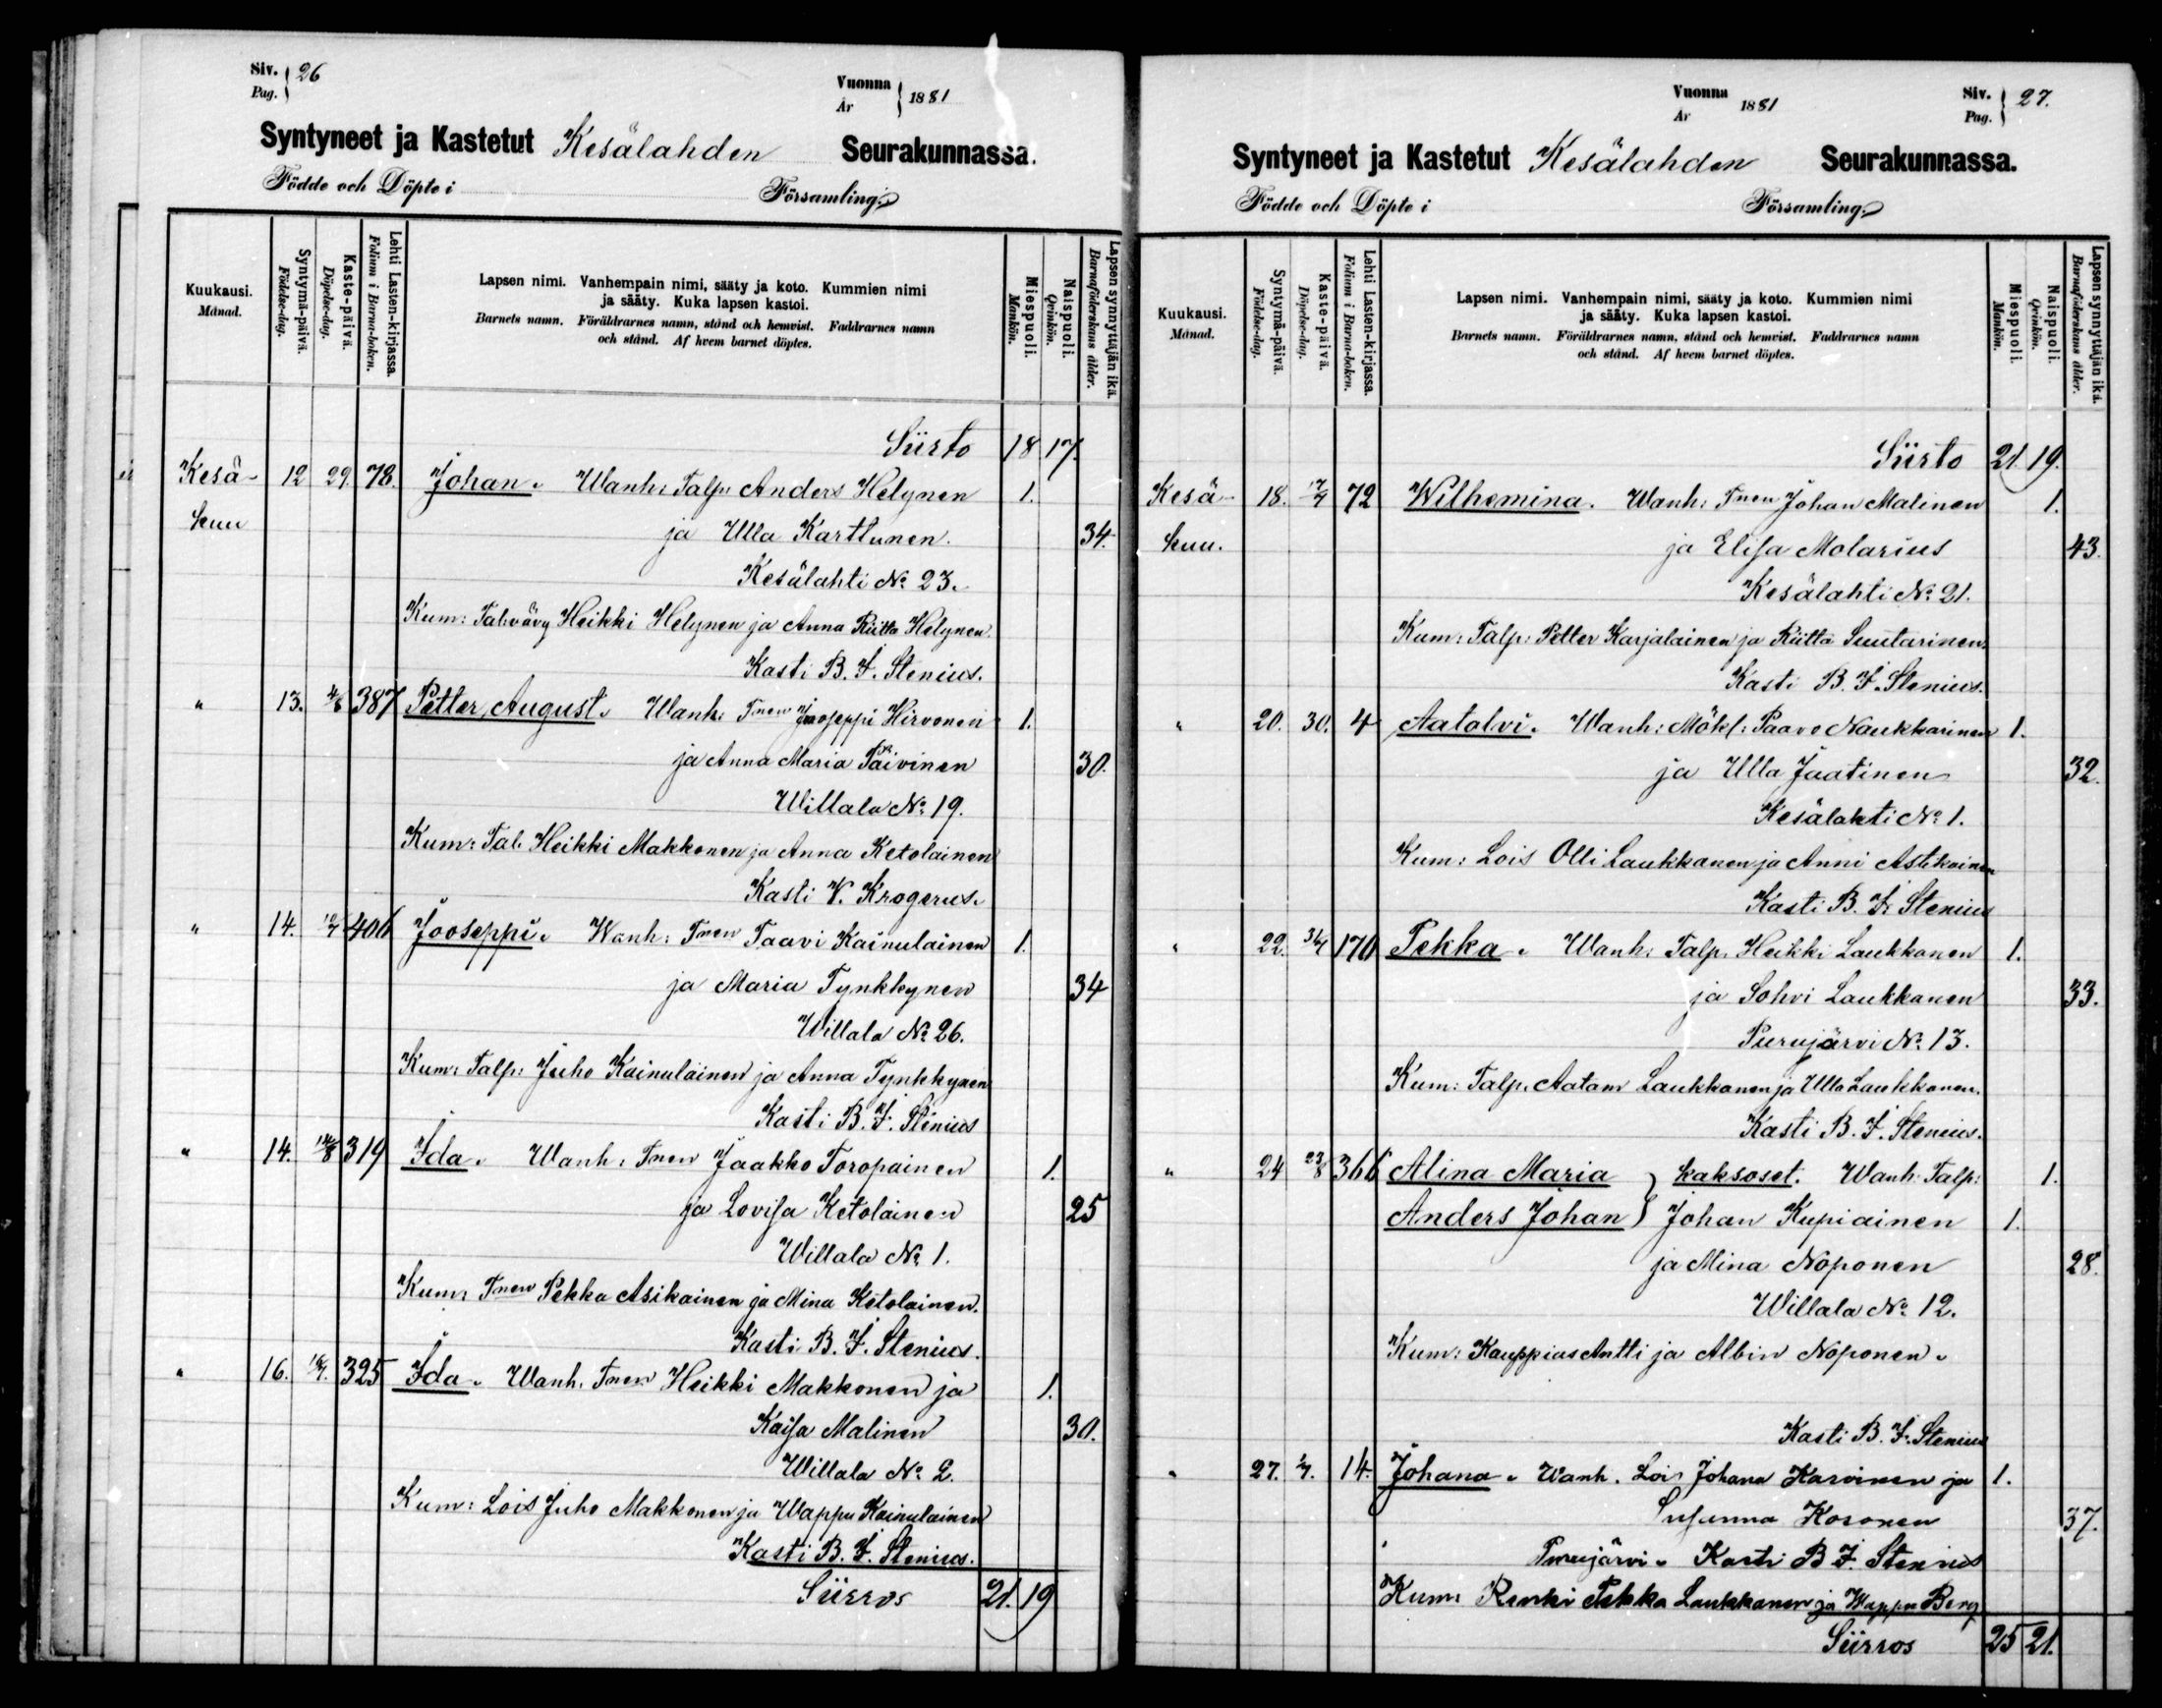 Siv. 26
Pag.
Vuonna 1881
År
Syntyneet ja Kastetut Kesälahden Seurakunnassa.
Födde och Döpte i Församling.
Kuukausi.
Månad.
Syntymä-päivä.
Födelse-dag.
Kaste-päivä.
Döpelse-dag.
Lehti Lasten-kirjassa.
Folium i Barna-boken.
Lapsen nimi. Vanhempain nimi, sääty ja koto. Kummien nimi
ja sääty. Kuka lapsen kastoi.
Barnets namn. Föräldrarnes namn, stånd och hemvist. Faddrarnes namn
och stånd. Af hvem barnet döptes.
Miespuoli.
Mankön.
Naispuoli.
Qvinkön.
Lapsen synnyttäjän ikä.
Barnaföderskans ålder.
Siirto 18 17.
Kesä- 12 29. 78. Johan. Wanh: Talp: Anders Helynen 1.
kuu ja Ulla Karttunen. 34.
Kesälahti No 23.
Kum: Tal: vävy Heikki Helynen ja Anna Riitta Helynen.
Kasti B. F. Stenius.
" 13. 4/6 387 Petter August. Wanh: Tnen Jooseppi Hirvonen 1.
ja Anna Maria Päivinen 30.
Willala No 19.
Kum: Tal. Heikki Makkonen ja Anna Ketolainen
Kasti V. Krogerus.
" 14. 406 Jooseppi. Wanh: Tnen Taavi Kainulainen 1.
ja Maria Tynkkynen 34
Willala No 26.
Kum: Talp: Juho Kainulainen ja Anna Tynkkynen
Kasti B. F. Stenius
" 14. 319 Ida. Wanh: Tnen Jaakko Toropainen 1.
ja Lovisa Ketolainen 25
Willala No 1.
Kum: Tnen Pekka Asikainen ja Mina Ketolainen.
Kasti B. F. Stenius.
" 16. 325 Ida. Wanh. Tnen Heikki Makkonen ja 1.
Kaisa Malinen 30.
Willala No 2.
Kum: Lois Juho Makkonen ja Wappu Kainulainen
Kasti B. F. Stenius.
Siirros 21. 19
Vuonna 1881
År
Siv. 27.
Pag.
Syntyneet ja Kastetut Kesälahden Seurakunnassa.
Födde och Döpte i Församling.
Kuukausi.
Månad.
Syntymä-päivä.
Födelse-dag.
Kaste-päivä.
Döpelse-dag.
Lehti Lasten-kirjassa.
Folium i Barna-boken.
Lapsen nimi. Vanhempain nimi, sääty ja koto. Kummien nimi
ja sääty. Kuka lapsen kastoi.
Barnets namn. Föräldrarnes namn, stånd och hemvist. Faddrarnes namn
och stånd. Af hvem barnet döptes.
Miespuoli.
Mankön.
Naispuoli.
Qvinkön.
Lapsen synnyttäjän ikä.
Barnaföderskans ålder.
Siirto 21. 19.
Kesä- 18. 17/7 72 Wilhemina. Wanh: Tnen Johan Malinen 1.
kuu. ja Elisa Molarius 43.
Kesälahti No 21.
Kum: Talp: Petter Karjalainen ja Riitta Suutarinen.
Kasti B. F. Stenius.
" 20. 30. 4 Aatolvi. Wanh: Mökl: Paavo Naukkarinen 1.
ja Ulla Jaatinen 32.
Kesälahti No 1.
Kum: Lois Olli Laukkanen ja Anni Astikainen
Kasti B. F. Stenius
" 22. 31/7 170 Pekka. Wanh: Talp. Heikki Laukkanen 1.
ja Sohvi Laukkanen 33.
Purujärvi No 13.
Kum: Talp. Aatam Laukkanen ja Ulla Laukkanen.
Kasti B. F. Stenius.
" 24 23/8 366 Alina Maria } kaksoset. Wanh: Talp: 1.
Anders Johan } Johan Kupiainen 1.
ja Mina Noponen 28.
Willala No 12.
Kum: Kauppias Antti ja Albin Noponen.
Kasti B. F. Stenius
" 27. 2/7. 14. Johana. Wanh. Lois Johana Karvinen ja 1.
Susanna Kosonen 37.
Purujärvi. Kasti B F. Stenius
Kum: Renki Pekka Laukkanen ja Wappu Berg
Siirros 25 21.